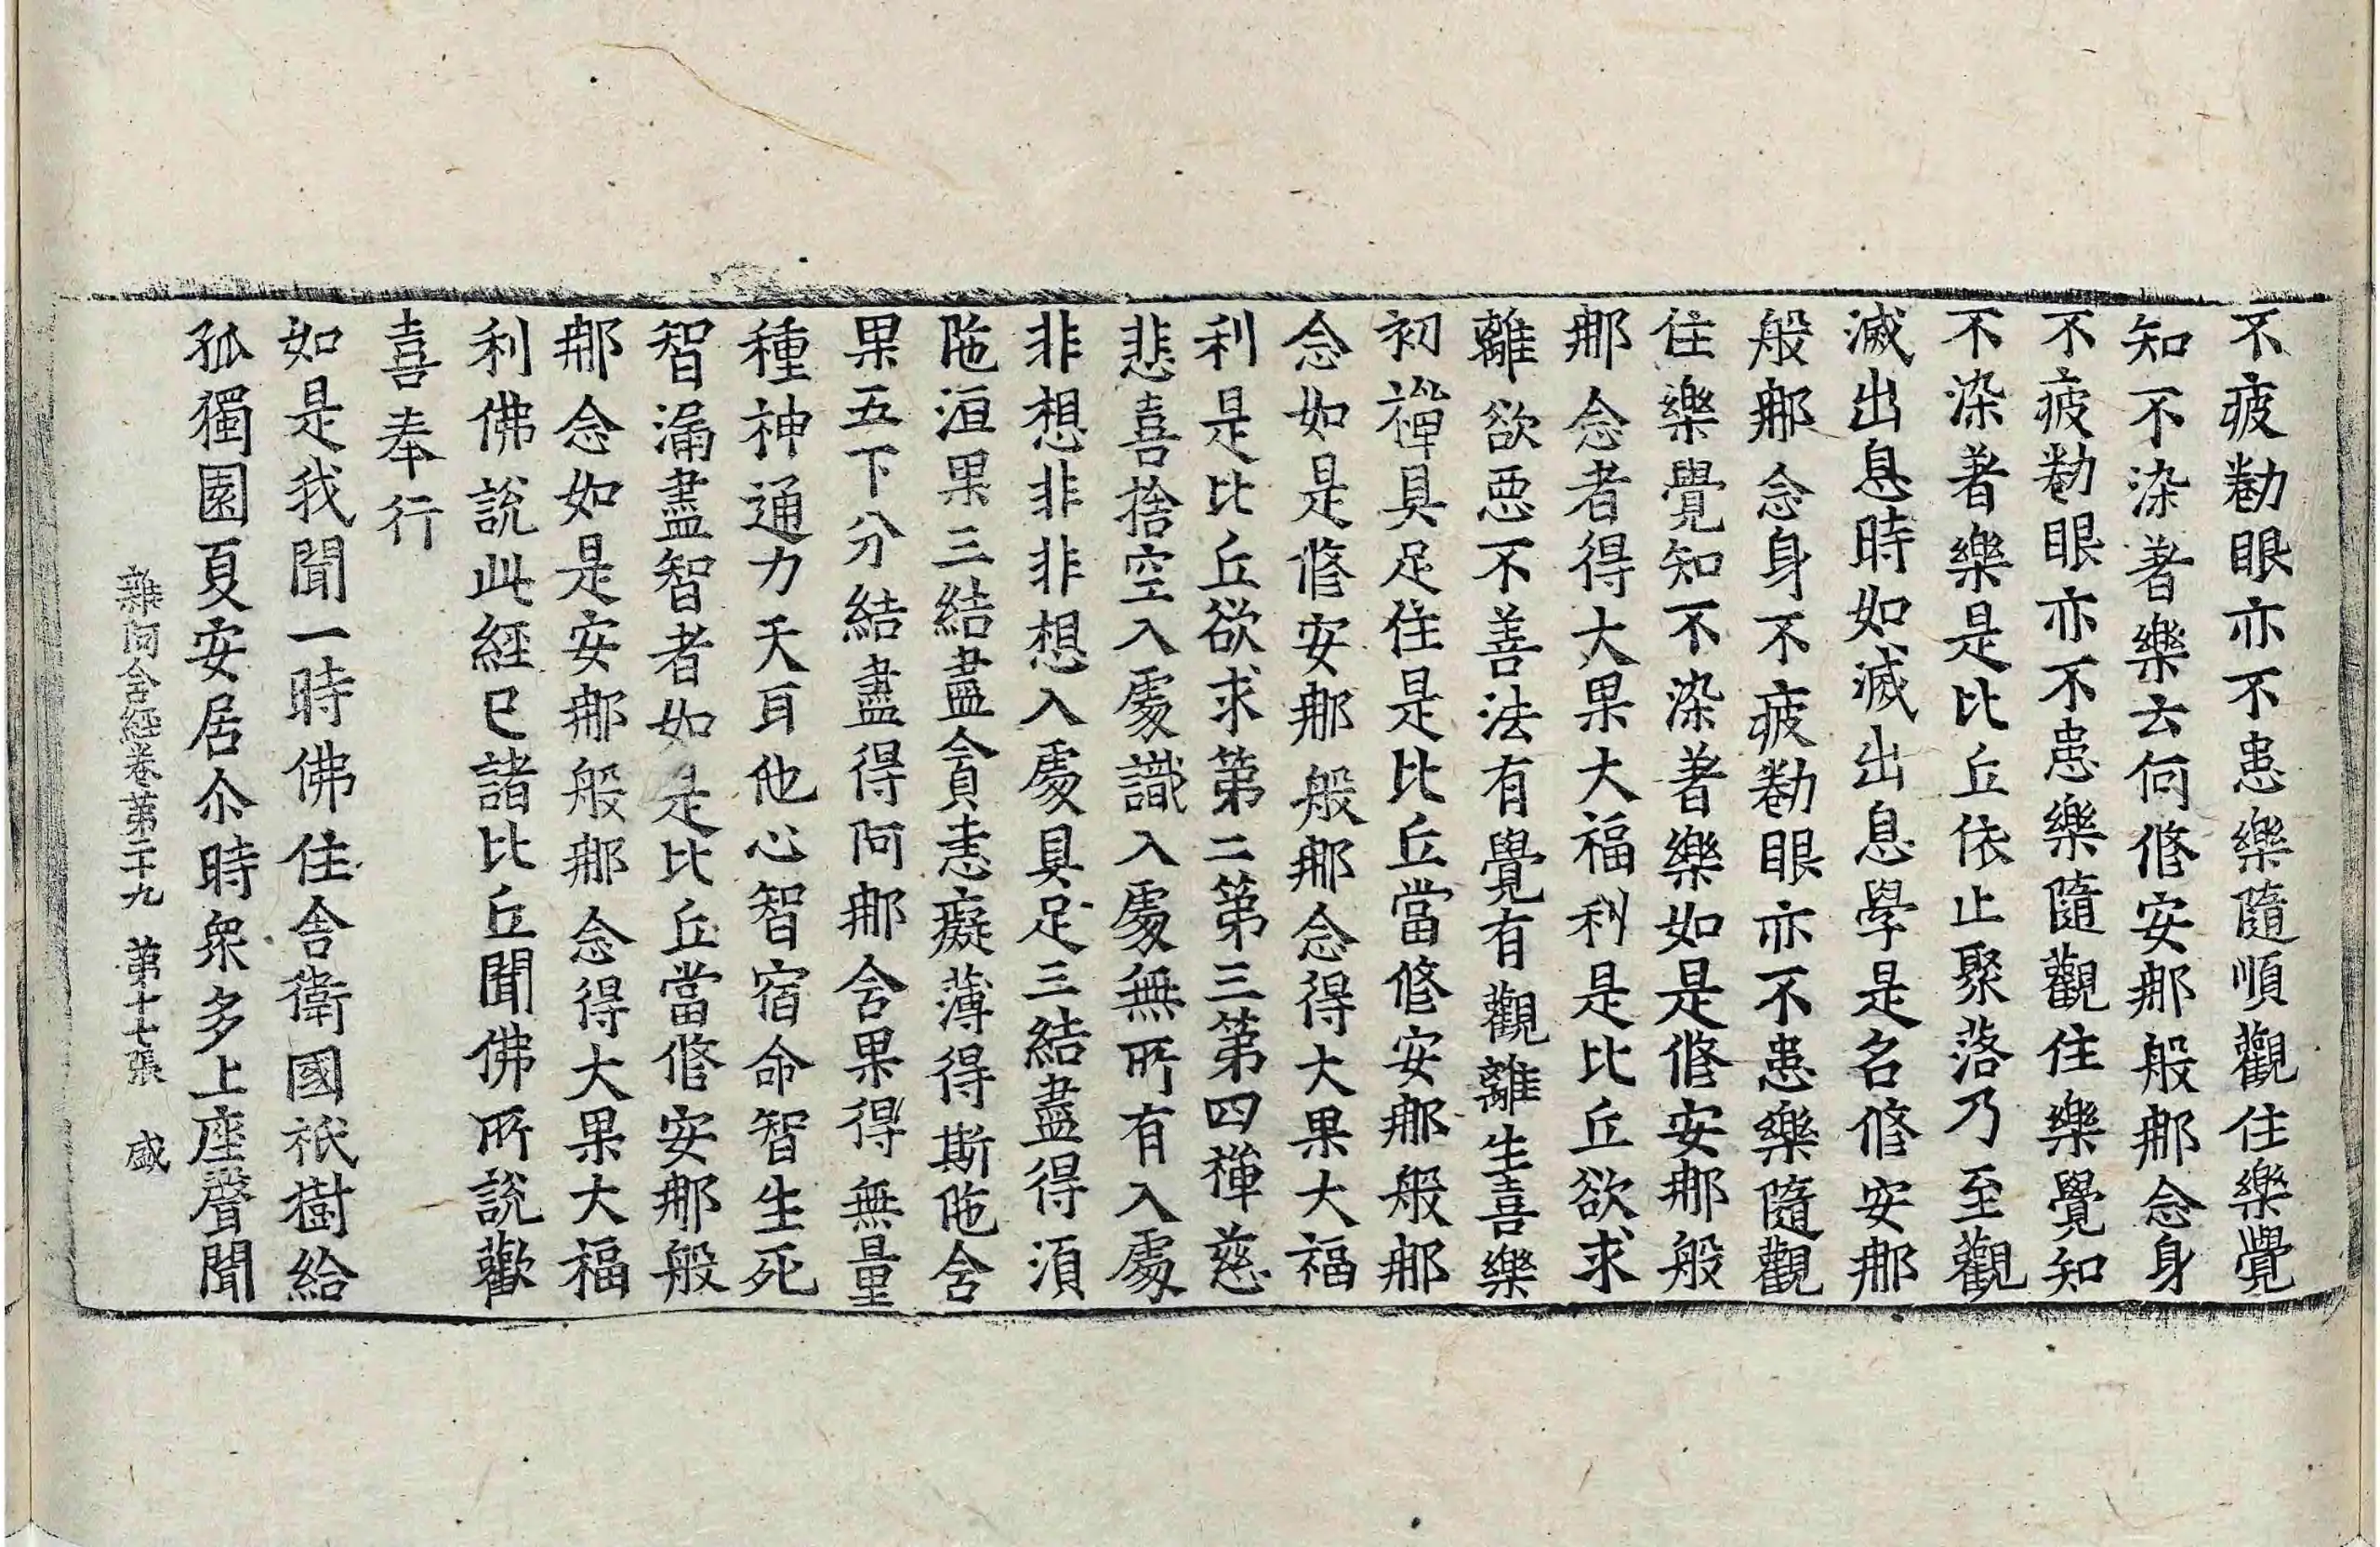 不疲勌眼亦不患樂隨順觀住樂覺
知不染著樂云何修安那般那念身
不疲勌眼亦不患樂隨觀住樂覺知
不染著樂是比丘依止聚落乃至觀
滅出息時如滅出息學是名修安那
般那念身不疲勌眼亦不患樂隨觀
住樂覺知不染著樂如是修安那般
那念者得大果大福利是比丘欲求
離欲惡不善法有覺有觀離生喜樂
初禪具足住是比丘當修安那般那
念如是修安那般那念得大果大福
利是比丘欲求第二第三第四禪慈
悲喜捨空入處識入處無所有入處
非想非非想入處具足三結盡得須
陁洹果三結盡貪恚癡薄得斯陁含
果五下分結盡得阿那含果得無量
種神通力天耳他心智宿命智生死
智漏盡智者如是比丘當修安那般
那念如是安那般那念得大果大福
利佛說此經已諸比丘聞佛所說歡
喜奉行
如是我聞一時佛住舍衛國祇樹給
孤獨園夏安居尒時衆多上座聲聞
雜阿含經卷第二十九 第十七張 盛